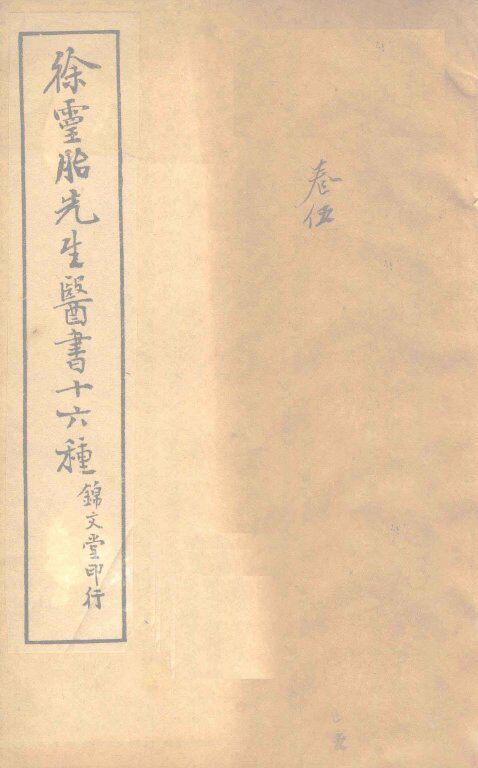 徐靈胎先生醫書十六種
錦文堂印行
卷伍